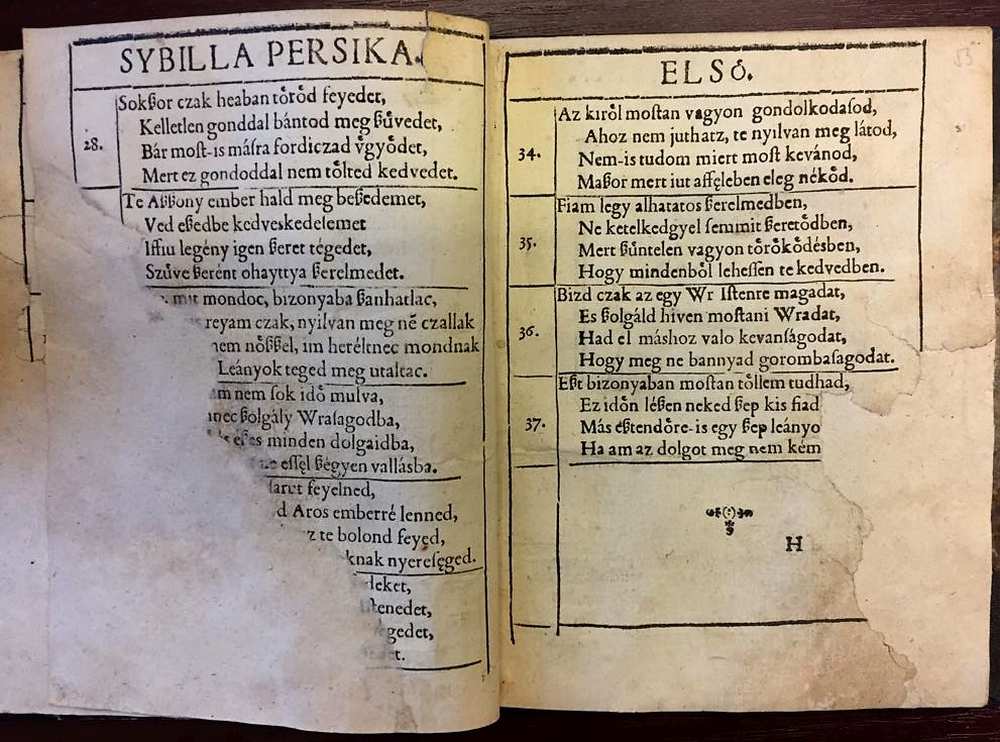 SYBILLA PERSIKA.
28.
Sokßor czak heaban tôrôd feyedet,
Kelletlen gonddal bántod meg ßûvedet,
Bár moſt-is máſra fordiczad ûgyôdet,
Mert ez gondoddal nem tôlted kedvedet.
Te Aßßony ember hald meg beßedemet,
Ved eßedbe kedveskedeſemet
Iffiu legény igen ßeret tégedet,
Szûve ßerént ohayttya ßerelmedet.
mit mondoc, bizonyaba ßanhatlac,
reyam czak, nyilvan meg nē czallak
nem nôßßel, im heréltnec mondnak
Leányok teged meg utaltac.
nem ſok idô mulva,
ßolgály Wraſagodba,
minden dolgaidba,
eſſęl ßégyen vallásba.
feyelned,
d Aros emberré lenned,
z te bolond feyed,
knak nyereſęged.
deket,
ſtenedet,
gedet,
t.
ELSÓ.
53
34.
Az kirôl moſtan vagyon gondolkodaſod,
Ahoz nem juthatz, te nyilvan meg látod,
Nem-is tudom miert moſt kevánod,
Maßor mert iut affęleben eleg nékôd.
35.
Fiam legy alhatatos ßerelmedben,
Ne ketelkedgyel ſemmit ßeretôdben,
Mert ßûntelen vagyon tôrôkôdésben,
Hogy mindenbôl leheſſen te kedvedben.
36.
Bizd czak az egy Wr Iſtenre magadat,
Es ßolgáld hiven moſtani Wradat,
Had el máshoz valo kevanſágodat,
Hogy meg ne bannyad gorombaſagodat.
37.
Eßt bizonyaban moſtan tôllem tudhad,
Ez idôn léßen neked ßep kis fiad
Más eßtendôre-is egy ßep leányo
Ha am az dolgot meg nem kém
H